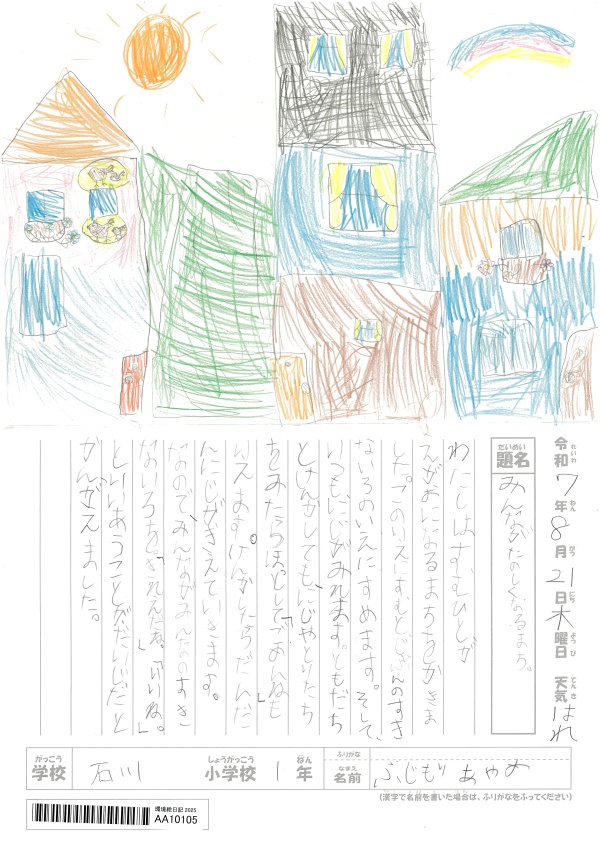 令和7年8月21日木曜日 天気 はれ
れいわ ねん がつ にち ようび てんき
だいめい
題名 みんながたのしくなるまち。
わたしはすむひとが
えがおになるまちをかきま
した。このいえにすむとじぶんのすき
ないろのいえにすめます。そして、
いつも、にじがみれます。ともだち
とけんかしても、にじや
をみたらほっとして「ごめんね」も
いえます。けんかしたらだんだ
んにじがきえていきます。
なので、みんながみんなのすき
ないろを「きれえだね。」「いいね。」
といいあうことがだいじだと
かんがえました。
がっこう しょうがっこう ねん ふりがな なまえ
学校 石川 小学校 1年 名前 ふじもり あやめ
(漢字で名前を書いた場合は、ふりがなをふってください)
環境絵日記 2025
AA10105